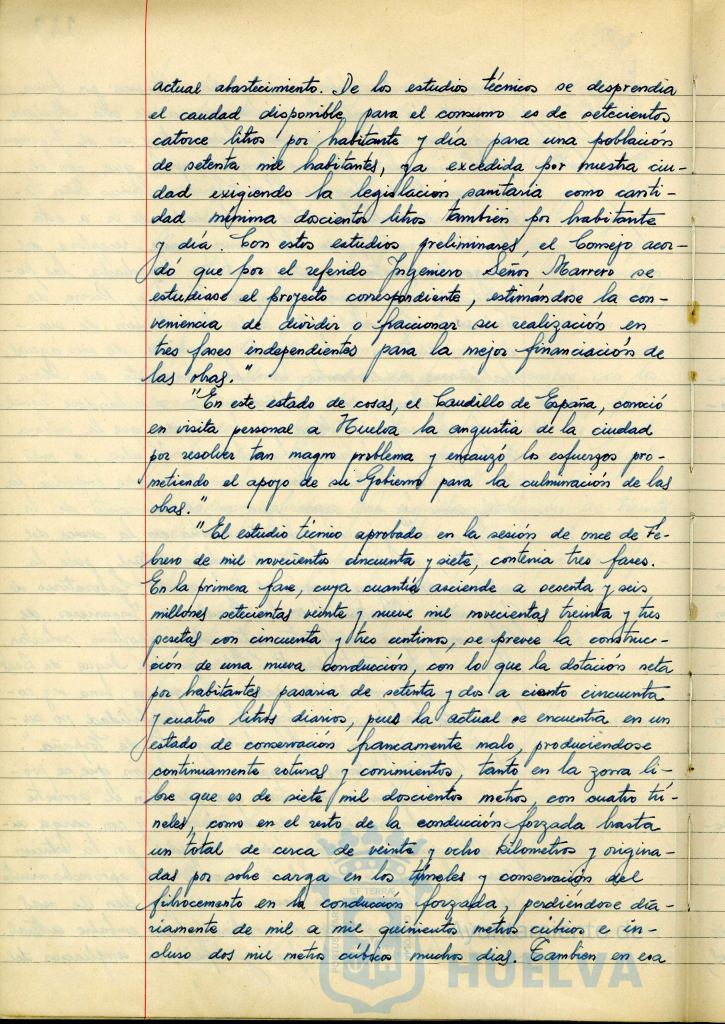 actual abastecimiento. De los estudios técnicos se desprendia
el caudad disponible para el consumo es de setecientos
catorce litros por habitante y día para una población
de setenta mil habitantes, ya excedida por nuestra ciu-
dad exigiendo la legislación sanitaria como canti-
dad mínima doscientos litros también por habitante
y día. Con estos estudios preliminares, el Consejo acor-
dó que por el referido Ingeniero Señor Marrero se
estudiase el proyecto correspondiente, estimándose la con-
veniencia de dividir o fraccionar su realización en
tres fases independientes para la mejor financiación de
las obras."
"En este estado de cosas, el Caudillo de España, conoció
en visita personal a Huelva la angustia de la ciudad
por resolver tan magno problema y encauzó los esfuerzos pro-
metiendo el apoyo de su Gobierno para la culminación de las
obras."
"El estudio técnico aprobado en la sesión de once de Fe-
brero de mil novecientos cincuenta y siete, contenia tres fases.
En la primera fase, cuya cuantía asciende a sesenta y seis
millones setecientas veinte y nueve mil novecientas treinta y tres
pesetas con cincuenta y tres centimos, se prevee la construc-
ción de una nueva conducción, con lo que la dotación neta
por habitantes pasaria de setenta y dos a ciento cincuenta
y cuatro litros diarios, pues la actual se encuentra en un
estado de conservación francamente malo, produciendose
continuamente roturas y corrimientos, tanto en la zona li-
bre que es de siete mil doscientos metros, con cuatro tú-
neles, como en el resto de la conducción forzada hasta
un total de cerca de veinte y ocho kilometros y origina-
das por sobre carga en los túneles y conservación del
fibrocemento en la conducción forzada, perdiéndose dia-
riamente de mil a mil quinientos metros cúbicos e in-
cluso dos mil metros cúbicos muchos dias. Tambien en esa
HUELVA